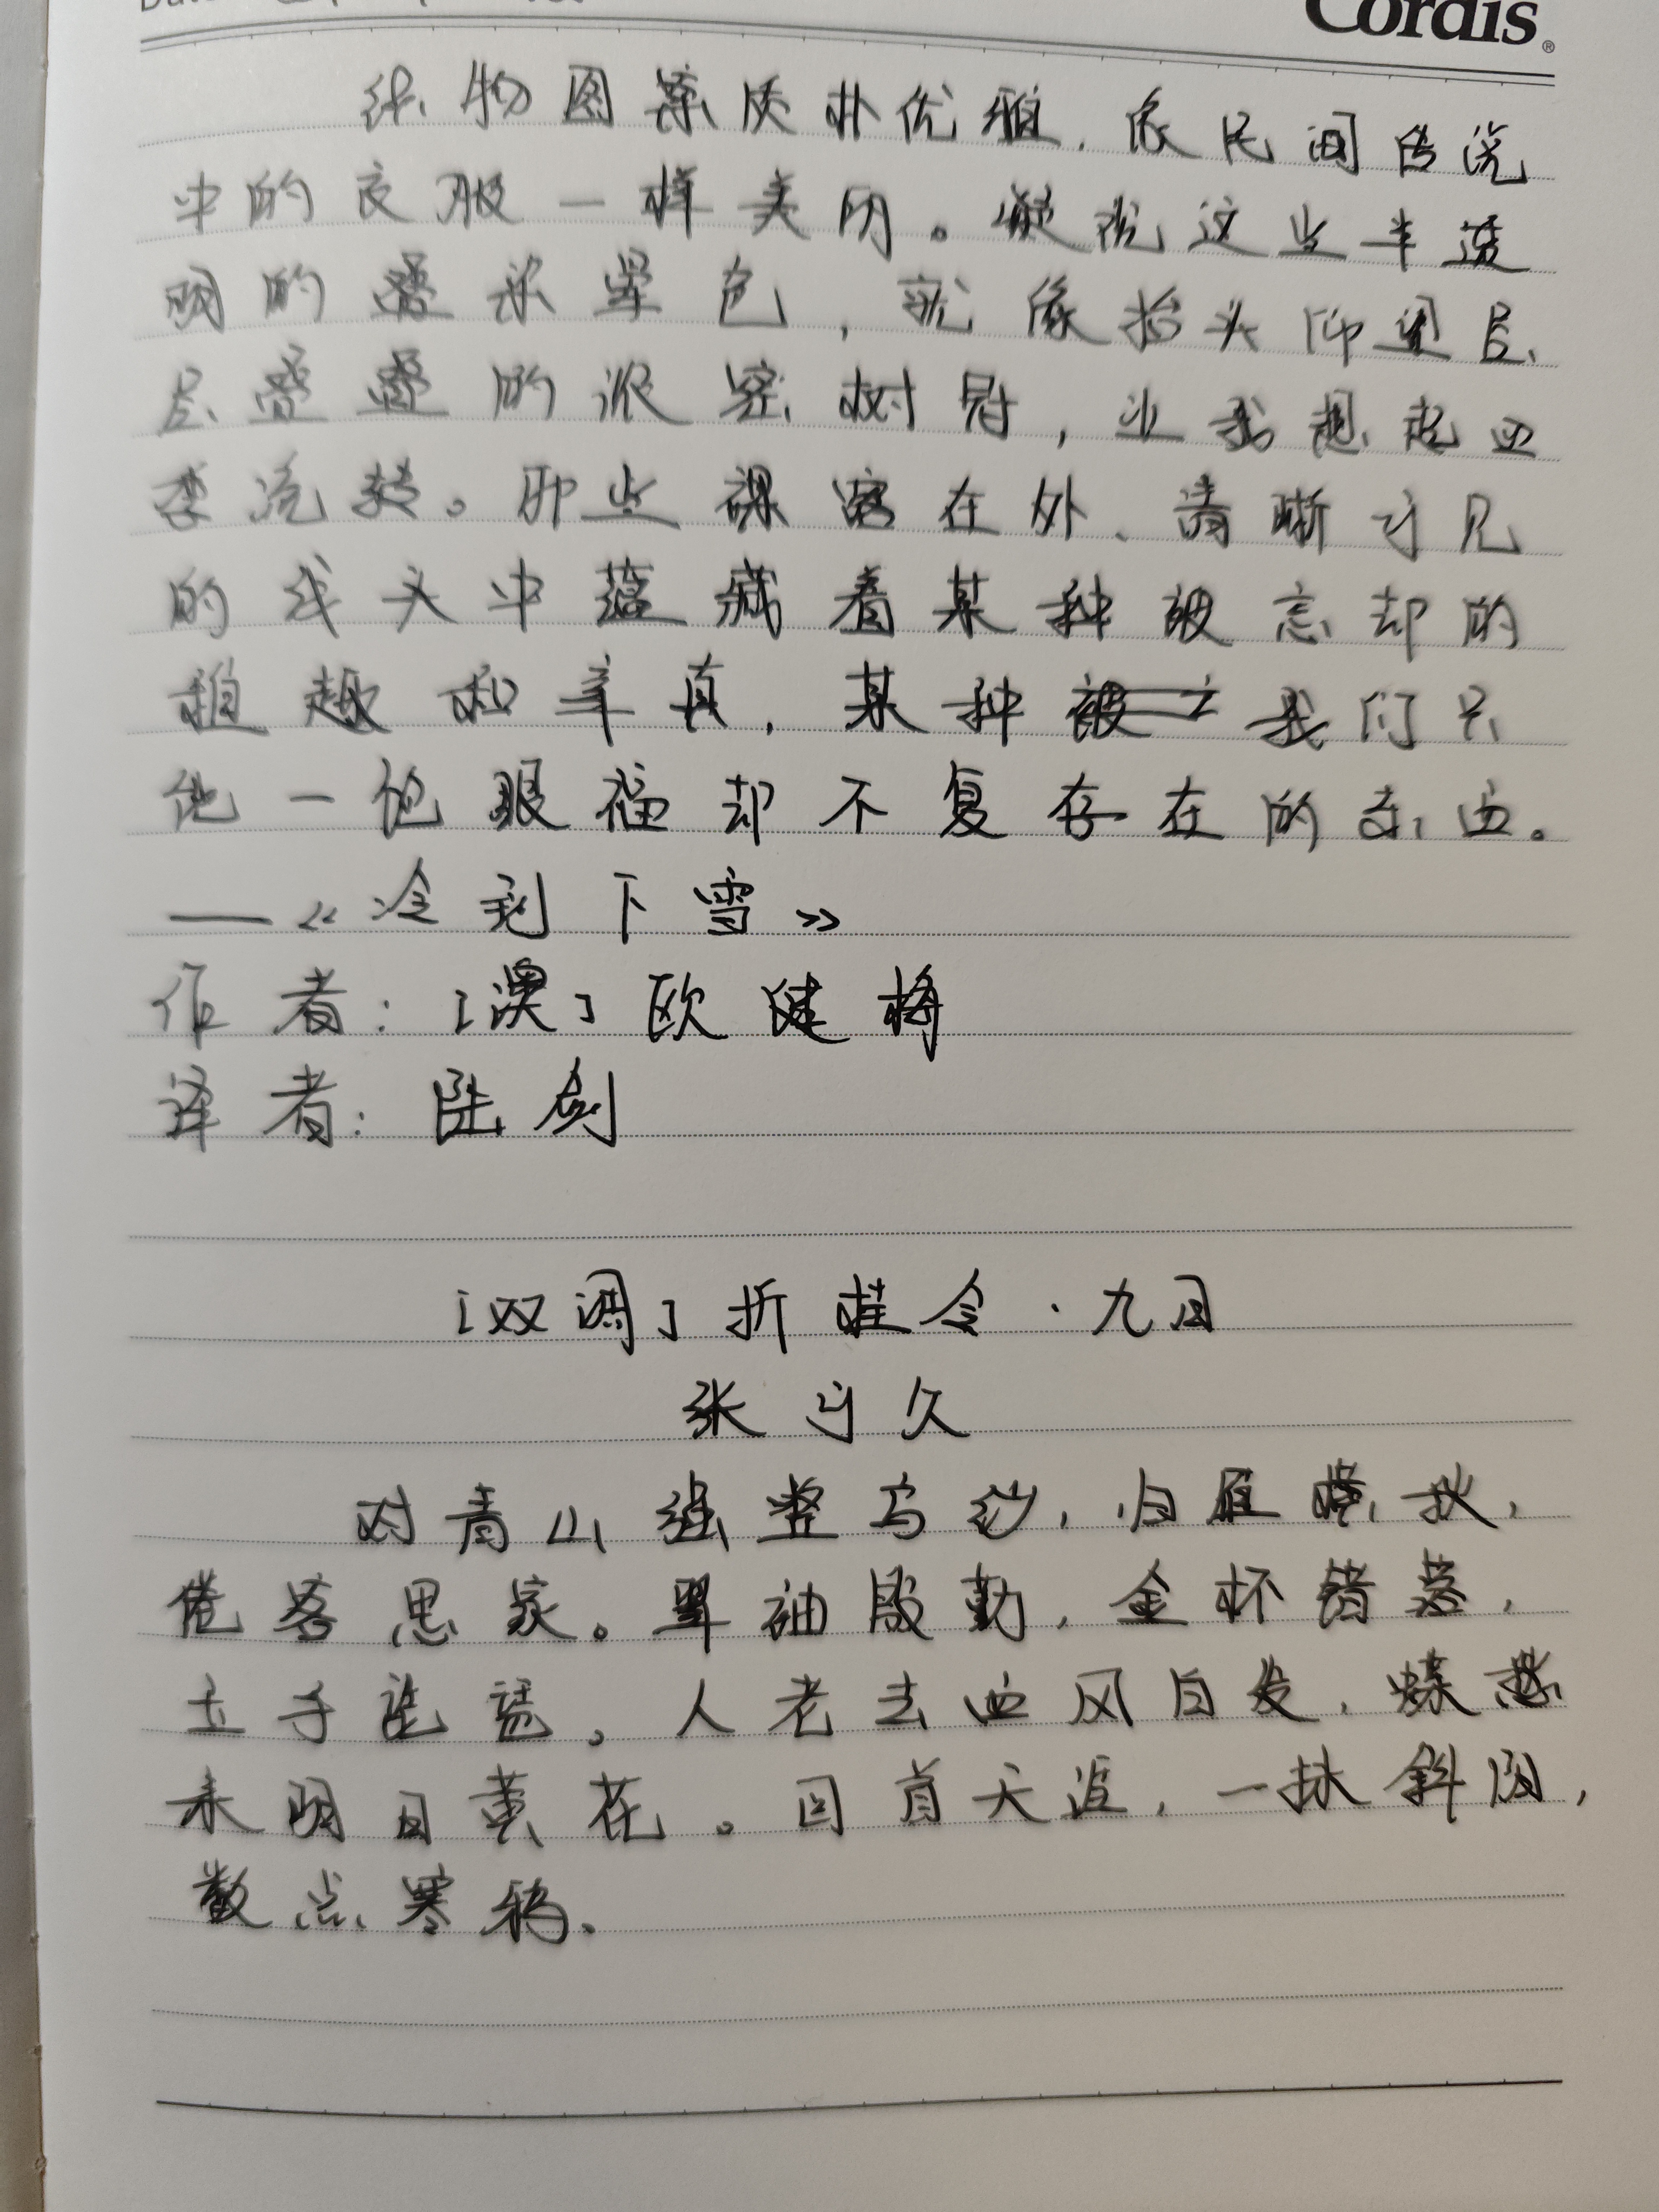 Cordis®
织物图案质朴优雅，像民间传说
中的衣服一样美丽。凝视这些半透
明的叠染晕色，就像抬头仰望层
层叠叠的浓密树冠，让我想起四
季流转。那些裸露在外、清晰可见
的线头中蕴藏着某种被忘却的
稚趣和率真，某种我们只
饱一饱眼福却不复存在的东西。
——《冷到下雪》
作者：[澳]欧健梅
译者：陆剑
[双调]折桂令·九日
张可久
对青山强整乌纱，归雁横秋，
倦客思家。翠袖殷勤，金杯错落，
玉手琵琶。人老去西风白发，蝶愁
来明日黄花。回首天涯，一抹斜阳，
数点寒鸦。